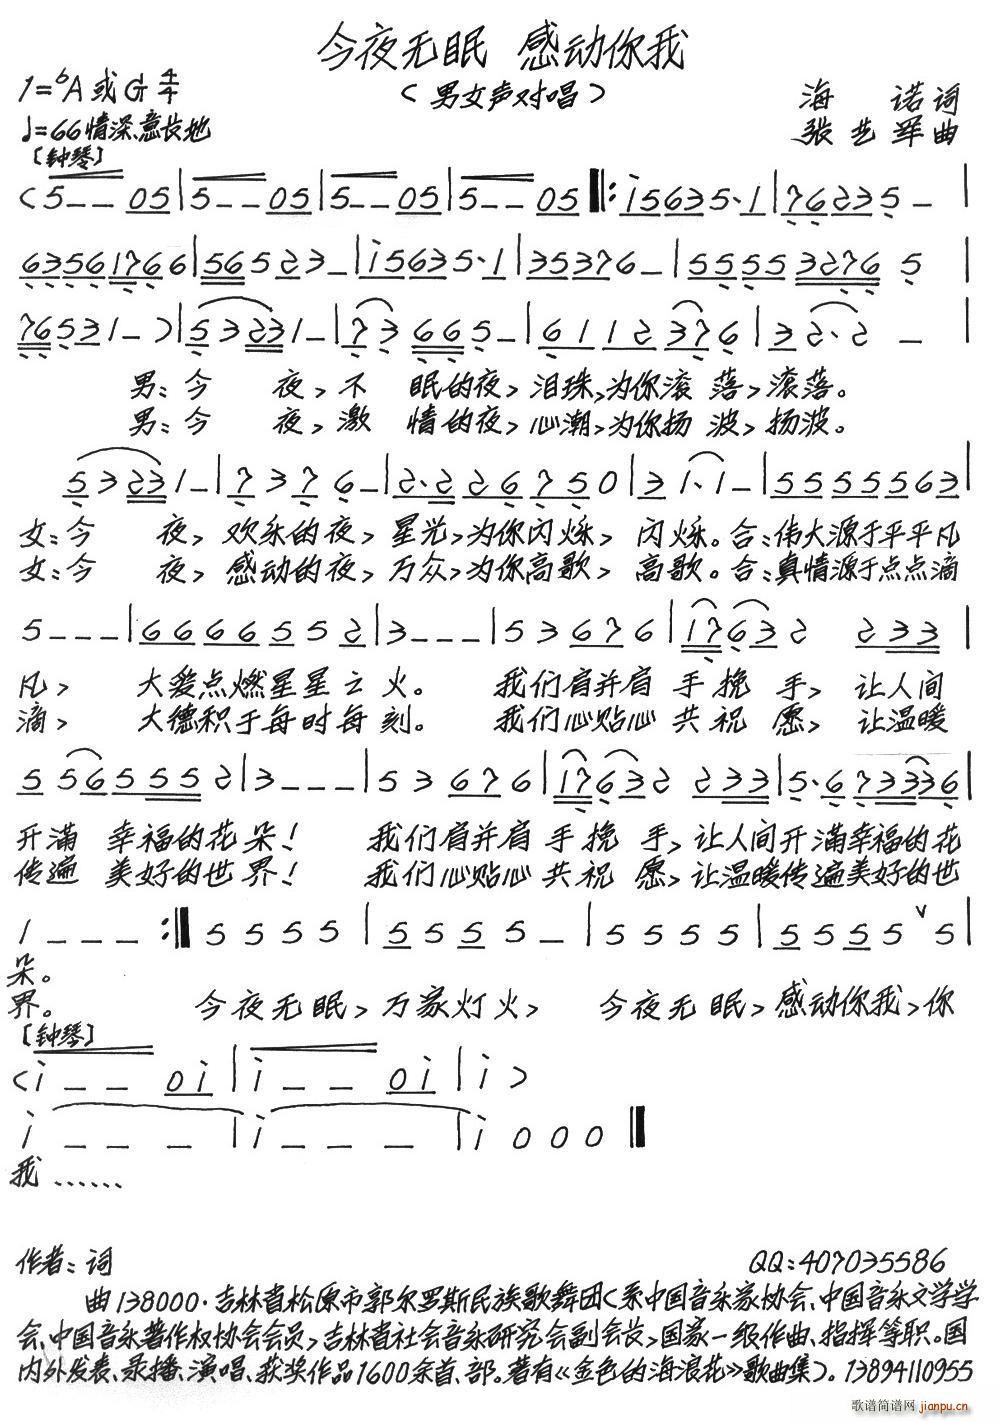 今夜无眠 感动你我
1=ᵇA或G 4/4 （男女声对唱） 海 诺 词
♩=66 情深、意长地 张艺军 曲
〔钟琴〕
（5 - - 05 | 5 - - 05 | 5 - - 05 | 5 - - 05 ‖: i5635·1 | 76235 -
63561766 | 56523 - | i5635·1 | 35376 - | 5555 3276 5
76531 - ）| 53231 - | 73665 - | 6112376 | 32·2 -
男：今 夜，不 眠的夜，泪珠、为你滚 落，滚落。
男：今 夜，激 情的夜，心潮，为你扬 波，扬波。
53231 - | 7376 - | 2·226750 | 31·1 - | 55555563
女：今 夜，欢乐的夜，星光，为你闪烁，闪烁。合：伟大源于平平凡
女：今 夜，感动的夜，万众，为你高歌，高歌。合：真情源于点点滴
5 - - - | 66665552 | 3 - - - | 53676 | 17632 233
凡， 大爱点燃星星之火。 我们肩并肩 手挽 手，让人间
滴， 大德积于每时每刻。 我们心贴心 共祝 愿，让温暖
5565552 | 3 - - - | 53676 | 17632 233 | 5·673336
开满 幸福的花朵！ 我们肩并肩 手挽 手，让人间开满幸福的花
传遍 美好的世界！ 我们心贴心 共祝 愿，让温暖传遍美好的世
1 - - - :‖ 5555 | 5555 - | 5555 | 5555 ∨ 5
朵。
界。 今夜无眠，万家灯火， 今夜无眠，感动你我，你
〔钟琴〕
（i - - 0i | i - - 0i | i ）
i - - - | i - - - | i 0 0 0 ‖
我……
作者：词 QQ:407035586
曲138000·吉林省松原市郭尔罗斯民族歌舞团（系中国音乐家协会、中国音乐文学学
会、中国音乐著作权协会会员，吉林省社会音乐研究会副会长，国家一级作曲、指挥等职。国
内外发表、录播、演唱、获奖作品1600余首、部。著有《金色的海浪花》歌曲集）。13894110955
歌谱简谱网 jianpu.cn